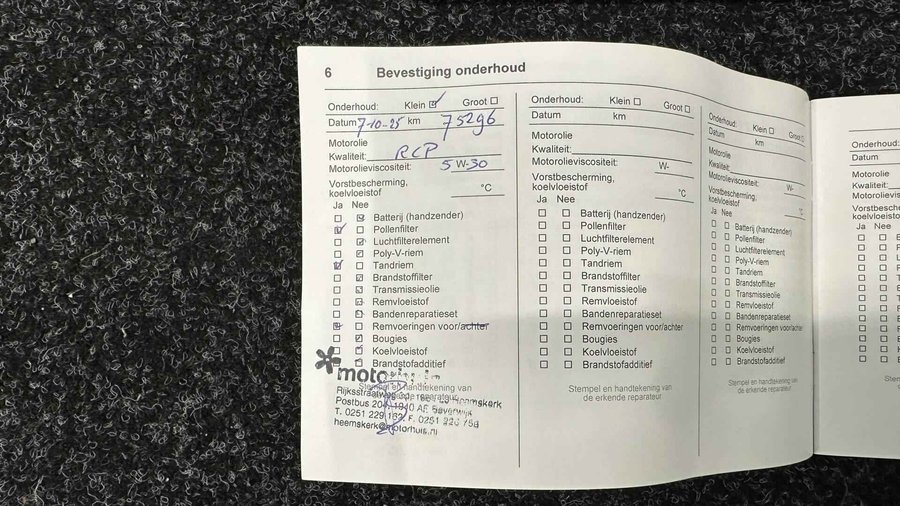 6 Bevestiging onderhoud
Onderhoud: Klein Groot
Datum 7-10-25 km 75296
Motorolie
Kwaliteit: RCP
Motorolieviscositeit: 5 W-30
Vorstbescherming,
koelvloeistof °C
Ja Nee
Batterij (handzender)
Pollenfilter
Luchtfilterelement
Poly-V-riem
Tandriem
Brandstoffilter
Transmissieolie
Remvloeistof
Bandenreparatieset
Remvoeringen voor/achter
Bougies
Koelvloeistof
Brandstofadditief
Stempel en handtekening van
Rijksstraatweg Heemskerk
Postbus 204, 1940 AE Beverwijk
T. 0251 229 162, F. 0251
heemskerk@motorhuis.nl
Onderhoud: Klein Groot
Datum km
Motorolie
Kwaliteit:
Motorolieviscositeit: W-
Vorstbescherming,
koelvloeistof °C
Ja Nee
Batterij (handzender)
Pollenfilter
Luchtfilterelement
Poly-V-riem
Tandriem
Brandstoffilter
Transmissieolie
Remvloeistof
Bandenreparatieset
Remvoeringen voor/achter
Bougies
Koelvloeistof
Brandstofadditief
Stempel en handtekening van
de erkende reparateur
Onderhoud: Klein Groot
Datum km
Motorolie
Kwaliteit:
Motorolieviscositeit: W-
Vorstbescherming,
koelvloeistof °C
Ja Nee
Batterij (handzender)
Pollenfilter
Luchtfilterelement
Poly-V-riem
Tandriem
Brandstoffilter
Transmissieolie
Remvloeistof
Bandenreparatieset
Remvoeringen voor/achter
Bougies
Koelvloeistof
Brandstofadditief
Stempel en handtekening van
de erkende reparateur
Onderhoud:
Datum
Motorolie
Kwaliteit:
Ja Nee